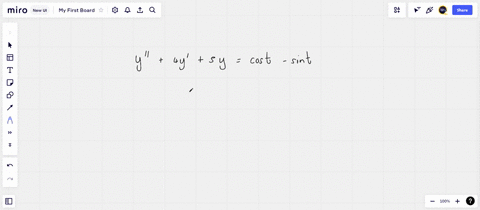 miro New UI My First Board Share
y'' + 4y' + 5y = cost - sint
100%